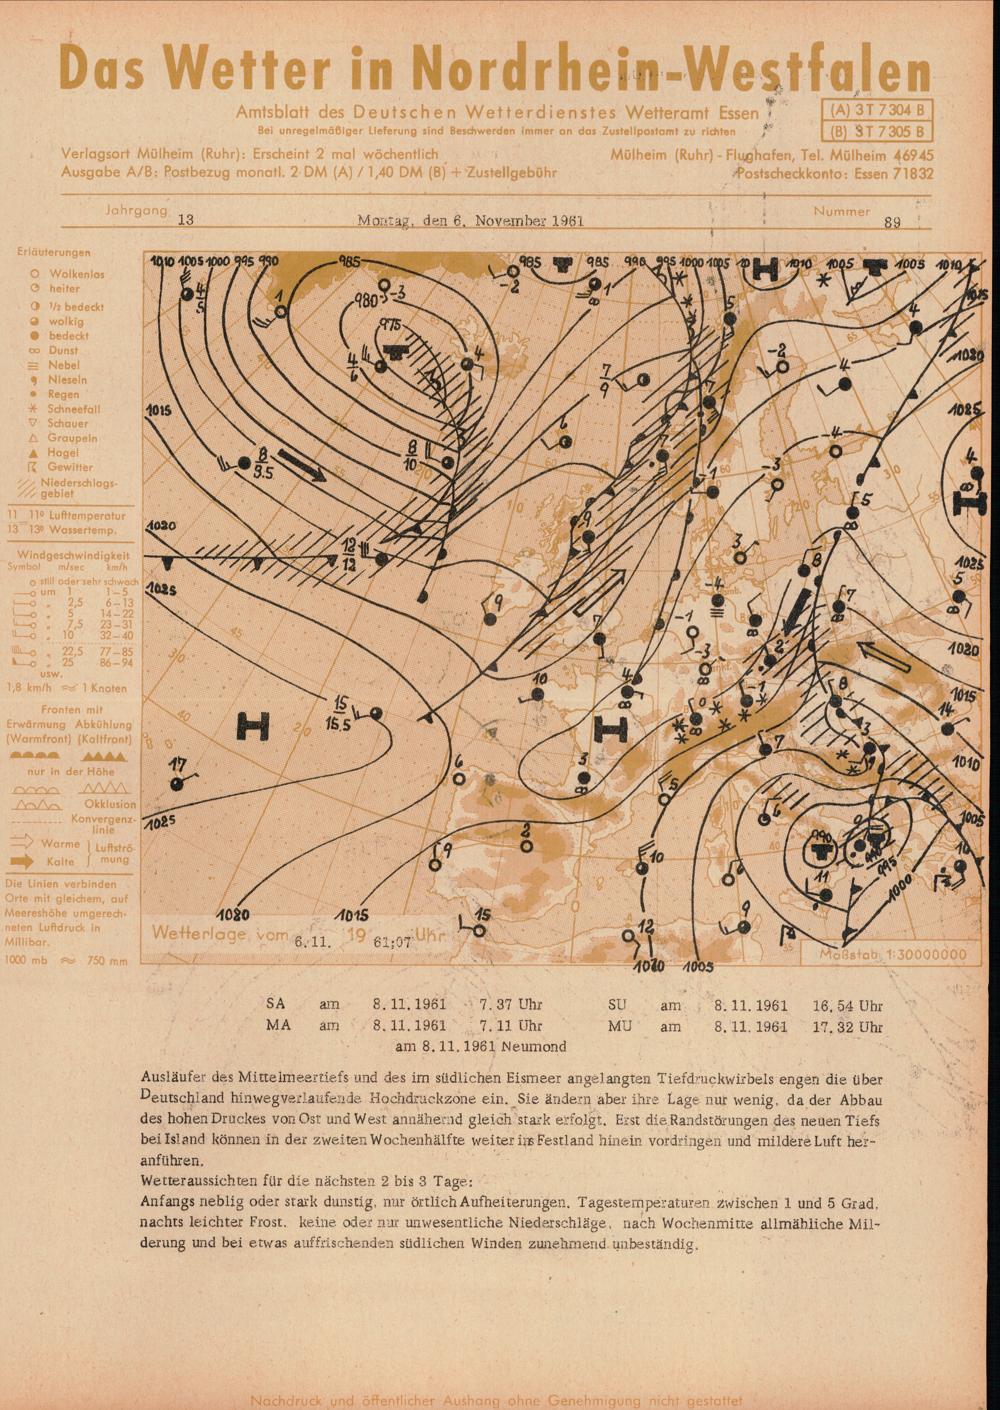 Das Wetter in Nordrhein-Westfalen
Amtsblatt des Deutschen Wetterdienstes Wetteramt Essen
(A) 3 T 7304 B
(B) 3 T 7305 B
Bei unregelmäßiger Lieferung sind Beschwerden immer an das Zustellpostamt zu richten
Verlagsort Mülheim (Ruhr): Erscheint 2 mal wöchentlich
Mülheim (Ruhr) - Flughafen, Tel. Mülheim 46945
Ausgabe A/B: Postbezug monatl. 2 DM (A) / 1,40 DM (B) + Zustellgebühr
Postscheckkonto: Essen 71832
Jahrgang 13
Montag, den 6. November 1961
Nummer 89
Erläuterungen
Wolkenlos
heiter
1/2 bedeckt
wolkig
bedeckt
Dunst
Nebel
Nieseln
Regen
Schneefall
Schauer
Graupeln
Hagel
Gewitter
Niederschlags-
gebiet
11 11° Lufttemperatur
13 13° Wassertemp.
Windgeschwindigkeit
Symbol m/sec km/h
still oder sehr schwach
um 1 1-5
" 2,5 6-13
" 5 14-22
" 7,5 23-31
" 10 32-40
" 22,5 77-85
" 25 86-94
usw.
1,8 km/h ≈ 1 Knoten
Fronten mit
Erwärmung Abkühlung
(Warmfront) (Kaltfront)
nur in der Höhe
Okklusion
Konvergenz-
linie
Warme
Kalte
Luftströ-
mung
Die Linien verbinden
Orte mit gleichem, auf
Meereshöhe umgerech-
neten Luftdruck in
Millibar.
1000 mb ≈ 750 mm
1010 1005 1000 995 990 985 985 985 990 995 1000 1005 1010 1005 1005 1010
1015
980
975
1020
1015
1025
1020
1025
1025
1020
1015
1010
1025
1005
990
995
1000
1020 1015
1010 1005
H
H
H
H
T
T
T
T
T
Wetterlage vom 6.11. 19 61;07 Uhr
Maßstab 1:30000000
SA am 8.11.1961 7.37 Uhr SU am 8.11.1961 16.54 Uhr
MA am 8.11.1961 7.11 Uhr MU am 8.11.1961 17.32 Uhr
am 8.11.1961 Neumond
Ausläufer des Mittelmeertiefs und des im südlichen Eismeer angelangten Tiefdruckwirbels engen die über
Deutschland hinwegverlaufende Hochdruckzone ein. Sie ändern aber ihre Lage nur wenig, da der Abbau
des hohen Druckes von Ost und West annähernd gleich stark erfolgt. Erst die Randstörungen des neuen Tiefs
bei Island können in der zweiten Wochenhälfte weiter ins Festland hinein vordringen und mildere Luft her-
anführen.
Wetteraussichten für die nächsten 2 bis 3 Tage:
Anfangs neblig oder stark dunstig, nur örtlich Aufheiterungen. Tagestemperaturen zwischen 1 und 5 Grad,
nachts leichter Frost. keine oder nur unwesentliche Niederschläge, nach Wochenmitte allmähliche Mil-
derung und bei etwas auffrischenden südlichen Winden zunehmend unbeständig.
Nachdruck und öffentlicher Aushang ohne Genehmigung nicht gestattet